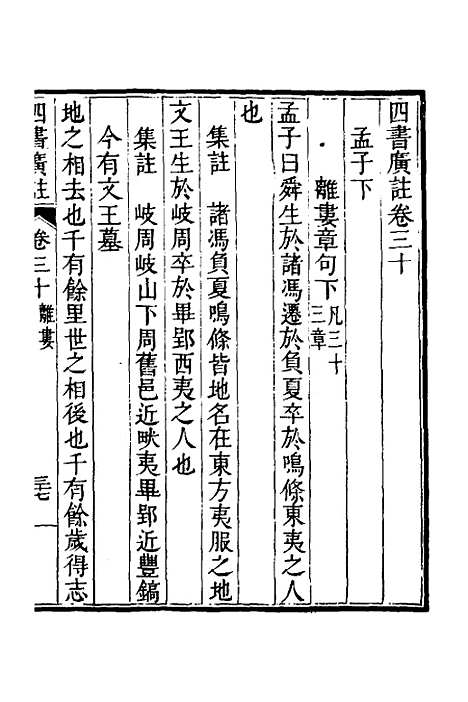 四書廣註卷三十
孟子下
離婁章句下凡三十三章
孟子曰舜生於諸馮遷於負夏卒於鳴條東夷之人
也
集註　諸馮負夏鳴條皆地名在東方夷服之地
文王生於岐周卒於畢郢西夷之人也
集註　岐周岐山下周舊邑近畎夷畢郢近豐鎬
今有文王墓
地之相去也千有餘里世之相後也千有餘歲得志
四書廣註　卷三十離婁　一